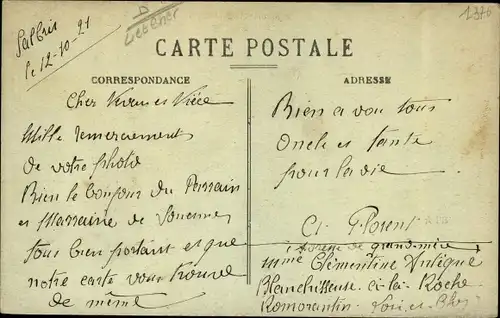 Salbris
le 12-10-21
1370
CARTE POSTALE
CORRESPONDANCE
ADRESSE
Cher et Nièce
Mille remerciements
de votre photo
Bien le bonjour du Parrain
et Marraine de
tous bien portant et que
notre carte vous trouve
de même
Bien a vou tous
Oncle et tante
pour la vie
Ct Florent
adresse de grand-mère
Mme Clémentine
Blanchisseuse a la Roche
Romorantin Loir et Cher